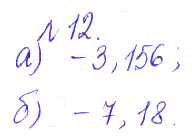 № 12.
а) -3,156;
б) -7,18.